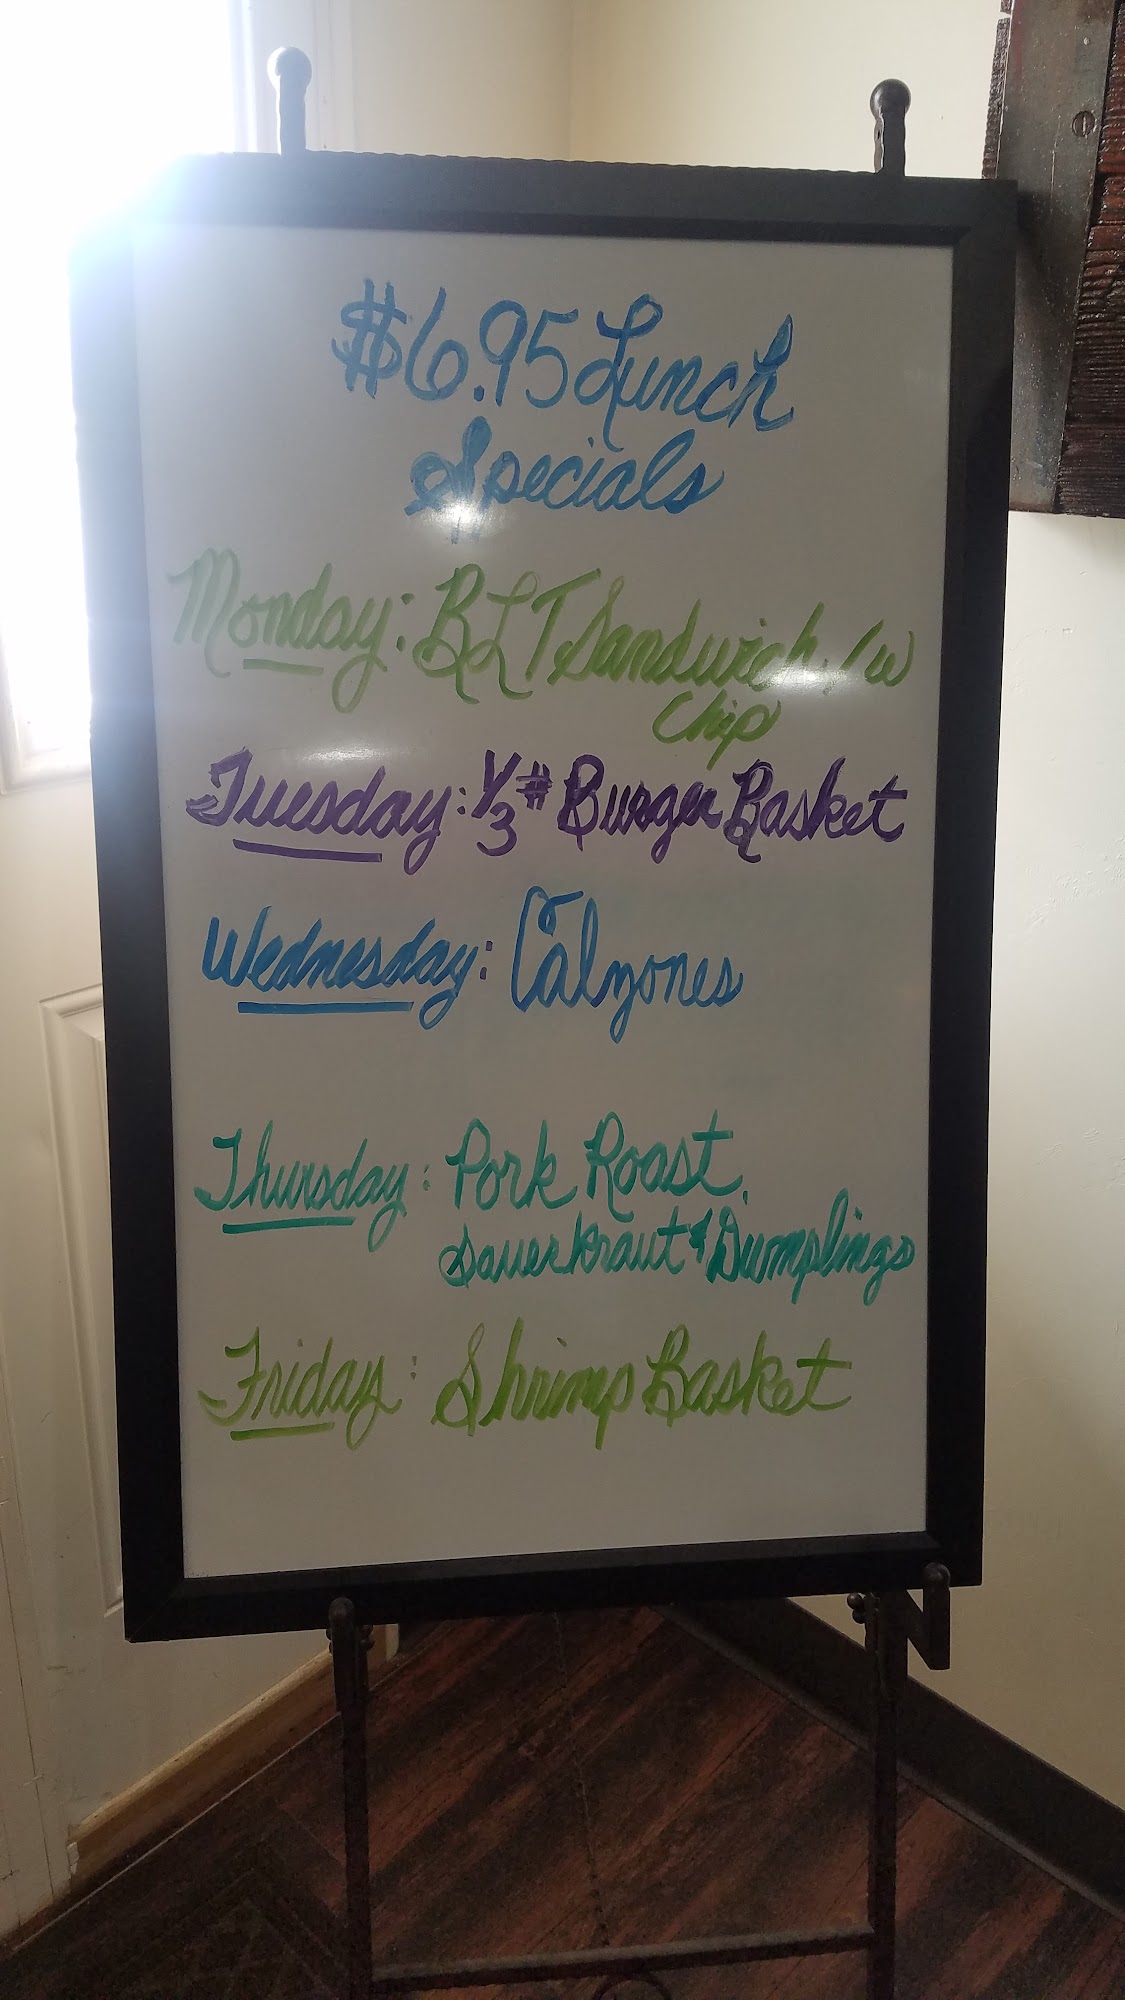 $6.95 Lunch
Specials
Monday: BLT Sandwich /w
Chip
Tuesday: 1/3# Burger Basket
Wednesday: Calzones
Thursday: Pork Roast,
Sauerkraut & Dumplings
Friday: Shrimp Basket